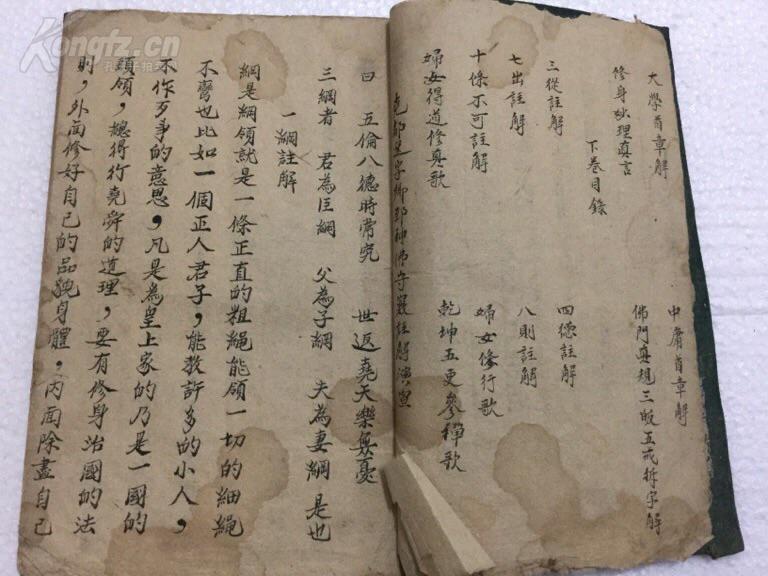 大學首章解 中庸首章解
修身妙理真言 佛門真規三皈五戒拆字解
下卷目錄
三從註解 四德註解
七出註解 八則註解
十條不可註解 婦女修行歌
婦女得道修真歌 乾坤五更參禪歌
曰 五倫八德時常究 世返堯天樂無憂
三綱者 君為臣綱 父為子綱 夫為妻綱 是也
一綱註解
綱是綱領就是一條正直的粗繩能領一切的細繩
不亂也比如一個正人君子，能教許多的小人，
不作歹事的意思，凡是為皇上家的乃是一國的
頭領，總得行堯舜的道理，要有修身治國的法
則，外面修好自己的品貌身體，內面除盡自己
Kongfz.cn